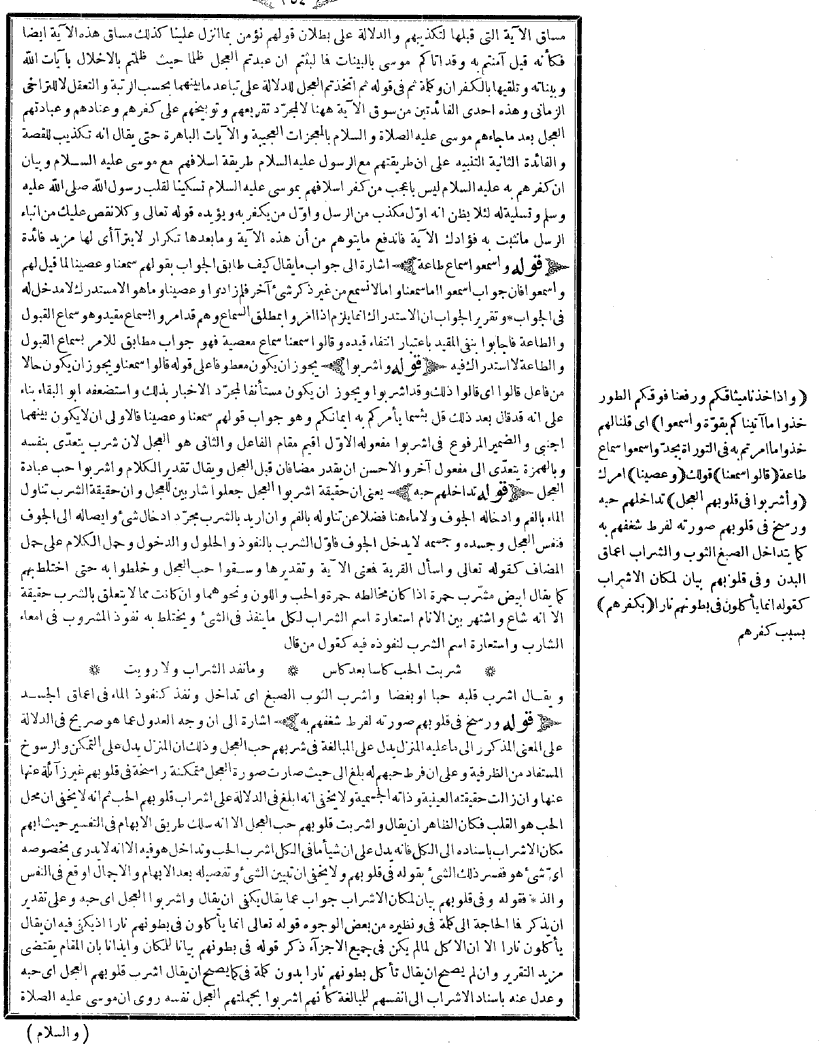 ٣٥٤
مساق الآية التى قبلها لتكذيبهم والدلالة على بطلان قولهم نؤمن بما انزل علينا كذلك مساق هذه الآية ايضا
فكأنه قيل آمنتم به وقد اتاكم موسى بالبينات فما لبثتم ان عبدتم العجل ظلما حيث ظلمتم بالاخلال بآيات الله
وبيناته وتلقيها بالكفران وكلمة ثم فى قوله ثم اتخذتم العجل للدلالة على تباعد ما بينهما بحسب الرتبة والتعقل لا للتراخى
الزمانى وهذه احدى الفائدتين من سوق الآية ههنا لا لمجرد تقريعهم وتوبيخهم على كفرهم وعنادهم وعبادتهم
العجل بعد ما جاءهم موسى عليه الصلاة والسلام بالمعجزات العجيبة والآيات الباهرة حتى يقال انه تكذيب للقصة
والفائدة الثانية التنبيه على ان طريقتهم مع الرسول عليه السلام طريقة اسلافهم مع موسى عليه الســلام وبيان
ان كفرهم به عليه السلام ليس باعجب من كفر اسلافهم بموسى عليه السلام تسكينا لقلب رسول الله صلى الله عليه
وسلم وتسلية له لئلا يظن انه اول مكذب من الرسل واول من يكفر به ويؤيده قوله تعالى وكلا نقص عليك من انباء
الرسل ما نثبت به فؤادك الآية فاندفع ما يتوهم من أن هذه الآية وما بعدها تكرار لا يترآأى لها مزيد فائدة
﴿ قوله واسمعوا سماع طاعة ﴾ اشارة الى جواب ما يقال كيف طابق الجواب بقولهم سمعنا وعصينا لما قيل لهم
واسمعوا فان جواب اسمعوا اما سمعنا واما لا نسمع من غير ذكر شئ آخر فلم زادوا وعصينا وما هو الا مستدرك لا مدخل له
فى الجواب * وتقرير الجواب ان الاستدراك انما يلزم اذا امروا بمطلق السماع وهم قد امروا بسماع مقيد وهو سماع القبول
والطاعة فاجابوا بنفى المقيد باعتبار انتفاء قيده وقالوا سمعنا سماع معصية فهو جواب مطابق للامر بسماع القبول
والطاعة لا استدراك فيه ﴿ قوله واشربوا ﴾ يجوز ان يكون معطوفا على قوله قالوا سمعنا ويجوز ان يكون حالا
من فاعل قالوا اى قالوا ذلك وقد اشربوا ويجوز ان يكون مستأنفا لمجرد الاخبار بذلك واستضعفه ابو البقاء بناء
على انه قد قال بعد ذلك قل بئسما يأمركم به ايمانكم وهو جواب قولهم سمعنا وعصينا فالاولى ان لا يكون بينهما
اجنبى والضمير المرفوع فى اشربوا مفعوله الاول اقيم مقام الفاعل والثانى هو العجل لان شرب يتعدى بنفسه
وبالهمزة يتعدى الى مفعول آخر والاحسن ان يقدر مضافان قبل العجل ويقال تقدير الكلام واشربوا حب عبادة
العجل ﴿ قوله تداخلهم حبه ﴾ يعنى ان حقيقة اشربوا العجل جعلوا شاربين للعجل وان حقيقة الشرب تناول
الماء بالفم وادخاله الجوف ولا ماء هنا فضلا عن تناوله بالفم وان اريد بالشرب مجرد ادخال شئ وايصاله الى الجوف
فنفس العجل وجسده وجسمه لا يدخل الجوف فاول الشرب بالنفوذ والحلول والدخول وحمل الكلام على حمل
المضاف كقوله تعالى واسأل القرية فعنى الآية وتقديرها وسـقوا حب العجل وخلطوا به حتى اختلط بهم
كما يقال ابيض مشرب حمرة اذا كان مخالطه حمرة والحب واللون ونحوهما وان كانت مما لا يتعلق بالشرب حقيقة
الا انه شاع واشتهر بين الانام استعارة اسم الشراب لكل ما ينفذ فى الشئ ويختلط به نفوذ المشروب فى امعاء
الشارب واستعارة اسم الشرب لنفوذه فيه كقول من قال
* شربت الحب كاسا بعد كاس * وما نفد الشراب ولا رويت *
ويقــال اشرب قلبه حبا او بغضا واشرب الثوب الصبغ اى تداخل ونفذ كنفوذ الماء فى اعماق الجســد
﴿ قوله ورسخ فى قلوبهم صورته لفرط شغفهم به ﴾ اشارة الى ان وجه العدول عما هو صريح فى الدلالة
على المعنى المذكور الى ما عليه المنزل يدل على المبالغة فى شربهم حب العجل وذلك ان المنزل يدل على التمكن والرسوخ
المستفاد من الظرفية وعلى ان فرط حبهم له بلغ الى حيث صارت صورة العجل متمكنة راسخة فى قلوبهم غير زآئلة عنها
عنها وان زالت حقيقته العينية وذاته الجسمية ولا يخفى انه ابلغ فى الدلالة على اشراب قلوبهم الحب ثم انه لا يخفى ان محل
الحب هو القلب فكان الظاهر ان يقال واشربت قلوبهم حب العجل الا انه سلك طريق الابهام فى التفسير حيث ابهم
مكان الاشراب باسناده الى الكل فانه يدل على ان شيأ ما فى الكل اشرب الحب وتداخل هو فيه الا انه لا يدرى بخصوصه
اى شئ هو ففسر ذلك الشئ بقوله فى قلوبهم ولا يخفى ان تبيين الشئ وتفصيله بعد الابهام والاجمال اوقع فى النفس
والذ * فقوله وفى قلوبهم بيان لمكان الاشراب جواب عما يقال يكفى ان يقال واشربوا العجل اى حبه وعلى تقدير
ان يذكر فما الحاجة الى كلمة فى ونظيره من بعض الوجوه قوله تعالى انما يأكلون فى بطونهم نارا اذ يكفى فيه ان يقال
يأكلون نارا الا ان الاكل لما لم يكن فى جميع الاجزآء ذكر قوله فى بطونهم بيانا للمكان وايذانا بان المقام يقتضى
مزيد التقرير وان لم يصح ان يقال تأكل بطونهم نارا بدون كلمة فى كما يصح ان يقال اشرب قلوبهم العجل اى حبه
وعدل عنه باسناد الاشراب الى انفسهم للمبالغة كأنهم اشربوا بجملتهم العجل نفسه روى ان موسى عليه الصلاة
( والسلام )
﴿ واذ اخذنا ميثاقكم ورفعنا فوقكم الطور
خذوا ما آتيناكم بقوة واسمعوا ﴾ اى قلنا لهم
خذوا ما امرتم به فى التوراة بجد واسمعوا سماع
طاعة ﴿ قالوا سمعنا ﴾ قولك ﴿ وعصينا ﴾ امرك
﴿ وأشربوا فى قلوبهم العجل ﴾ تداخلهم حبه
ورسخ فى قلوبهم صورته لفرط شغفهم به
كما يتداخل الصبغ الثوب والشراب اعماق
البدن وفى قلوبهم بيان لمكان الاشراب
كقوله انما يأكلون فى بطونهم نارا ﴿ بكفرهم ﴾
بسبب كفرهم